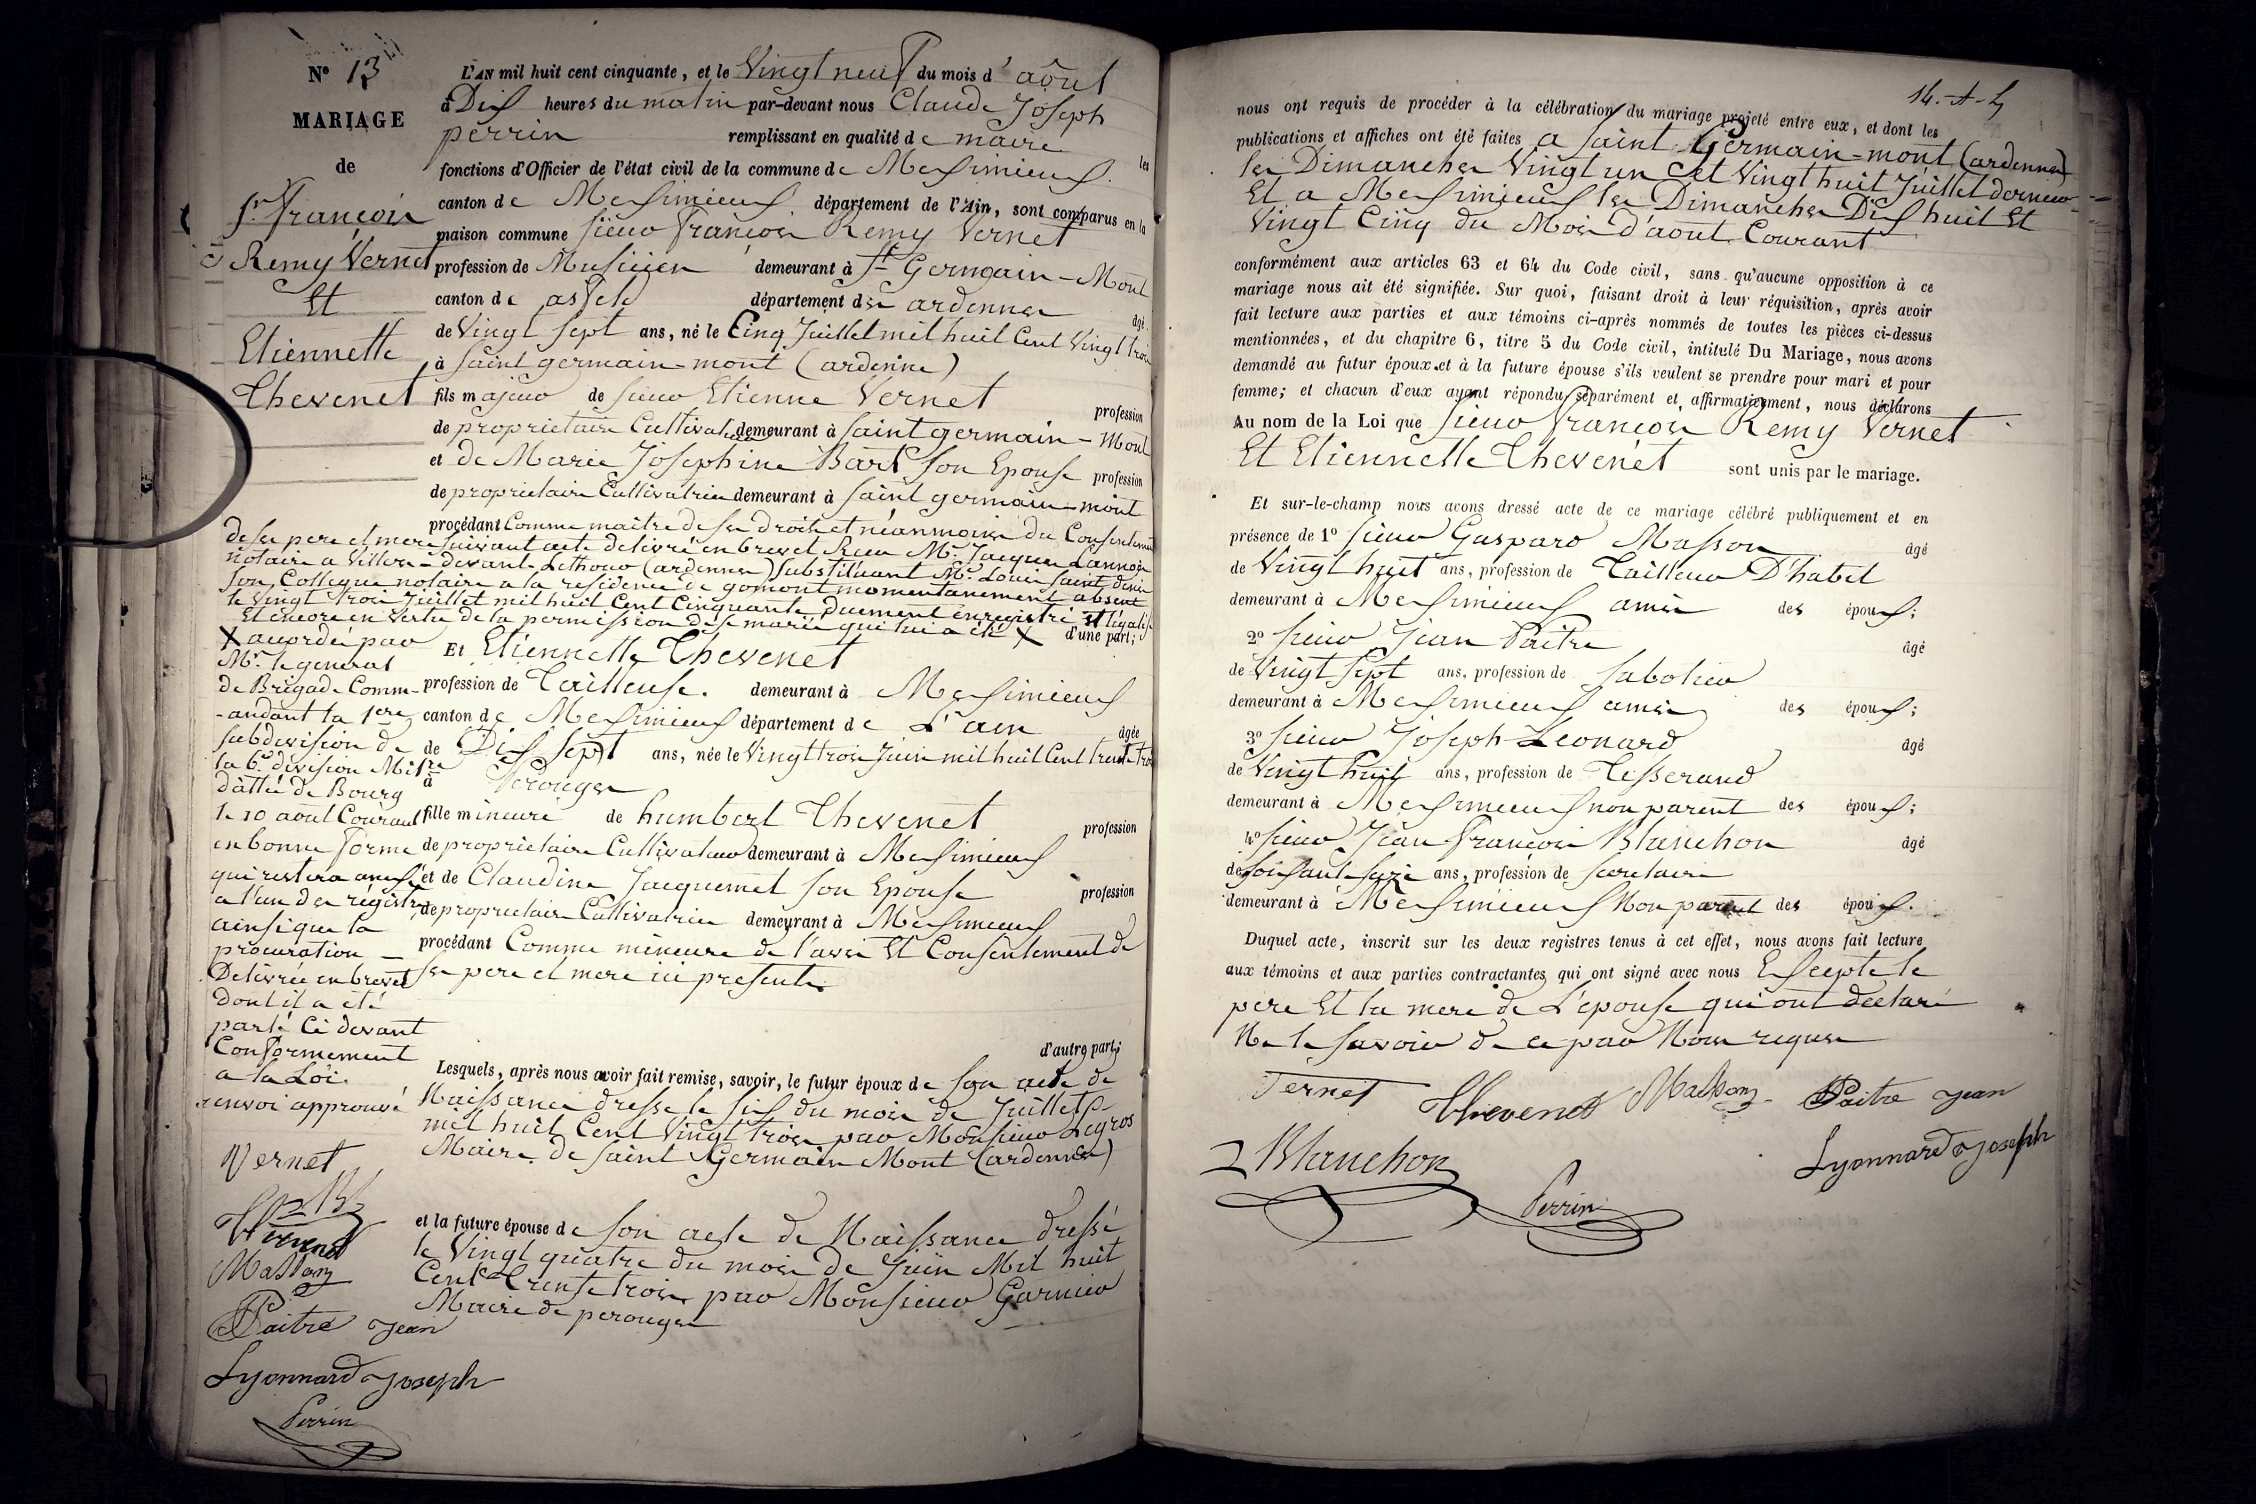 Nº 13
MARIAGE
de
Sr. françois
Remy Vernet
Et
Etiennette
Thevenet
L'AN mil huit cent cinquante, et le Vingt neuf du mois d'août
à Dix heures du matin par-devant nous Claude Joseph
perrin remplissant en qualité de maire les
fonctions d'Officier de l'état civil de la commune de Meximieux
canton de Meximieux département de l'Ain, sont comparus en la
maison commune sieur françois Remy Vernet
profession de Musicien demeurant à St Germain-Mont
canton de asfeld département des ardennes âgé
de Vingt sept ans, né le Cinq Juillet mil huit Cent Vingt trois
à saint germain-mont (ardenne)
fils majeur de sieur Etienne Vernet profession
de proprietaire Cultivateur demeurant à saint germain-Mont
et de Marie Josephine Bart son Epouse profession
de proprietaire Cultivatrice demeurant à saint germain-mont
procédant Comme maitre de ses droits et néanmoins du Consentement
de ses pere et mere suivant acte delivré en brevet Reçu Mr. Jacques Lannois
notaire a Villers-devant-Lethour (ardennes) substituant Mr. Louis saint denis
son Collegue notaire a la residence de gomont momentanement absent
le Vingt trois Juillet mil huit Cent Cinquante Duement enregistré et légalisé
Et encore en Vertu de la permission de se marier qui lui a été X d'une part;
X accordée par
Mr. le general
de Brigade Comm-
-andant la 1ere
subdivision de
la 6e division Mil.re
dâtée de Bourg
le 10 août Courant
en bonne forme
qui restera annexé
a l'un des régistres
ainsi que la
procuration -
Delivrée en brevet
dont il a été
parlé Ci devant
Conformement
a la Loi.
renvoi approuvé
Vernet
Thevenet
Masson
Paitre Jean
Lyonnard Joseph
Perrin
Et Etiennette Thevenet
profession de Tailleuse. demeurant à Meximieux
canton de Meximieux département de L'ain âgée
de Dix sept ans, née le Vingt trois Juin mil huit Cent trente trois
à Perouges
fille mineure de humbert Thevenet profession
de proprietaire Cultivateur demeurant à Meximieux
et de Claudine Jacquemet son Epouse profession
de proprietaire Cultivatrice demeurant à Meximieux
procédant Comme mineure de l'avis Et Consentement de
ses pere et mere ici presents
d'autre part;
Lesquels, après nous avoir fait remise, savoir, le futur époux de son acte de
Naissance dressé le six du mois de Juillet
mil huit Cent Vingt trois par Monsieur Legros
Maire de saint Germain Mont (ardennes)
et la future épouse de son acte de Naissance dressé
le Vingt quatre du mois de Juin Mil huit
Cent Trente trois par Monsieur Garnier
Maire de perouges
nous ont requis de procéder à la célébration du mariage projeté entre eux, et dont les
publications et affiches ont été faites a saint Germain-mont (ardennes)
les Dimanches Vingt un Et Vingt huit Juillet dernier
Et a Meximieux les Dimanches Dix huit Et
Vingt Cinq du Mois d'aout Courant
conformément aux articles 63 et 64 du Code civil, sans qu'aucune opposition à ce
mariage nous ait été signifiée. Sur quoi, faisant droit à leur réquisition, après avoir
fait lecture aux parties et aux témoins ci-après nommés de toutes les pièces ci-dessus
mentionnées, et du chapitre 6, titre 5 du Code civil, intitulé Du Mariage, nous avons
demandé au futur époux et à la future épouse s'ils veulent se prendre pour mari et pour
femme; et chacun d'eux ayant répondu séparément et affirmativement, nous déclarons
Au nom de la Loi que sieur françois Remy Vernet
Et Etiennette Thevenet sont unis par le mariage.
Et sur-le-champ nous avons dressé acte de ce mariage célébré publiquement et en
présence de 1º sieur Gaspard Masson âgé
de Vingt huit ans, profession de Tailleur D'habit
demeurant à Meximieux amis des époux;
2º sieur Jean Paitre âgé
de Vingt sept ans, profession de sabotier
demeurant à Meximieux amis des époux;
3º sieur Joseph Leonard âgé
de Vingt huit ans, profession de Tisserand
demeurant à Meximieux non parent des époux;
4º sieur Jean françois Blanchon âgé
de soixante seize ans, profession de secretaire
demeurant à Meximieux Non parent des époux.
Duquel acte, inscrit sur les deux registres tenus à cet effet, nous avons fait lecture
aux témoins et aux parties contractantes qui ont signé avec nous Excepté le
pere Et la mere de L'epouse qui ont declaré
Ne le savoir de ce par Nous requis
Vernet Thevenet Masson Paitre Jean
Blanchon Perrin Lyonnard Joseph